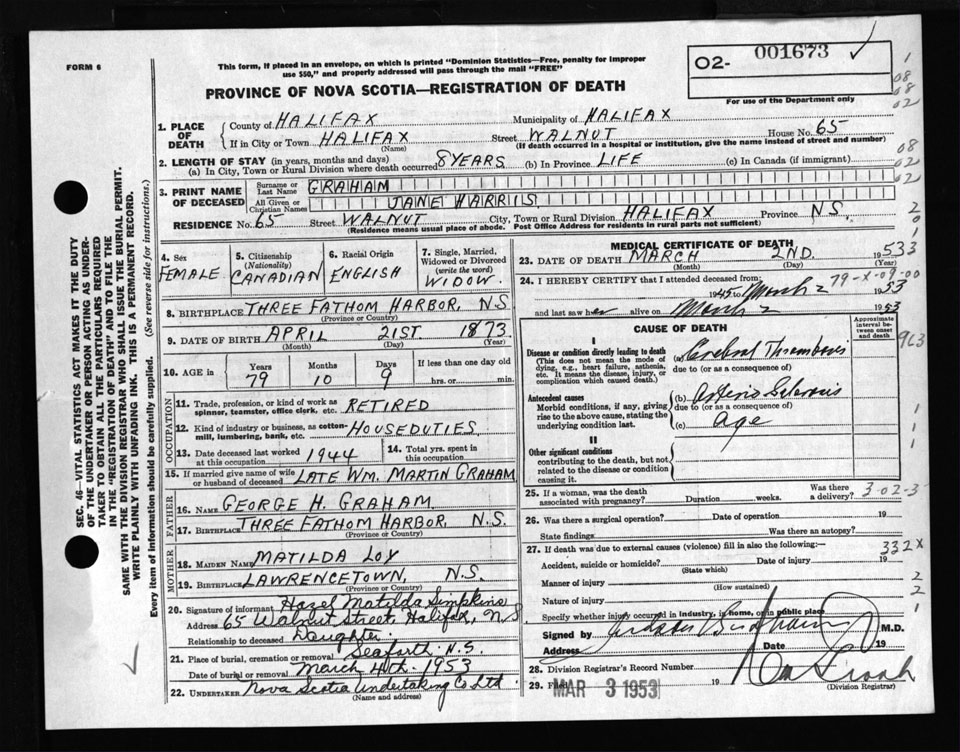 FORM 6
This form, if placed in an envelope, on which is printed "Dominion Statistics—Free, penalty for improper
use $50," and properly addressed will pass through the mail "FREE"
PROVINCE OF NOVA SCOTIA—REGISTRATION OF DEATH
O2- 001673
For use of the Department only
1
08
08
02
1. PLACE OF DEATH
County of HALIFAX Municipality of HALIFAX
If in City or Town HALIFAX Street WALNUT House No. 65
(Name) (If death occurred in a hospital or institution, give the name instead of street and number)
08
02
2. LENGTH OF STAY (in years, months and days)
(a) In City, Town or Rural Division where death occurred 8 YEARS (b) In Province LIFE (c) In Canada (if immigrant)
02
3. PRINT NAME OF DECEASED
Surname or Last Name GRAHAM
All Given or Christian Names JANE HARRIS
RESIDENCE No. 65 Street WALNUT City, Town or Rural Division HALIFAX Province N.S.
(Residence means usual place of abode. Post Office Address for residents in rural parts not sufficient)
4. Sex FEMALE
5. Citizenship (Nationality) CANADIAN
6. Racial Origin ENGLISH
7. Single, Married, Widowed or Divorced (write the word) WIDOW.
8. BIRTHPLACE THREE FATHOM HARBOR, N.S
(Province or Country)
9. DATE OF BIRTH APRIL 21ST 1873
(Month) (Day) (Year)
10. AGE in Years 79 Months 10 Days 9 If less than one day old hrs. or min.
OCCUPATION
11. Trade, profession, or kind of work as spinner, teamster, office clerk, etc. RETIRED
12. Kind of industry or business, as cotton-mill, lumbering, bank, etc. HOUSEDUTIES
13. Date deceased last worked at this occupation 1944
14. Total yrs. spent in this occupation
15. If married give name of wife or husband of deceased LATE WM. MARTIN GRAHAM
FATHER
16. NAME GEORGE H. GRAHAM
17. BIRTHPLACE THREE FATHOM HARBOR, N.S.
(Province or Country)
MOTHER
18. MAIDEN NAME MATILDA LOY
19. BIRTHPLACE LAWRENCETOWN, N.S.
(Province or Country)
20. Signature of informant Hazel Matilda Simpkins
Address 65 Walnut Street, Halifax, N.S
Relationship to deceased Daughter.
21. Place of burial, cremation or removal Seaforth N.S.
Date of burial or removal March 4th. 1953
22. UNDERTAKER Nova Scotia Undertaking Co Ltd.
(Name and address)
MEDICAL CERTIFICATE OF DEATH
23. DATE OF DEATH MARCH 2ND. 1953
(Month) (Day) (Year)
24. I HEREBY CERTIFY that I attended deceased from: 79-X-09-00
1945 to March 2 1953
and last saw her alive on March 2 1953
CAUSE OF DEATH
Approximate interval between onset and death
I
Disease or condition directly leading to death (a) Cerebral Thrombosis
(This does not mean the mode of dying, e.g., heart failure, asthenia, etc. It means the disease, injury, or complication which caused death.)
due to (or as a consequence of)
Antecedent causes (b) Arterio Sclerosis
Morbid conditions, if any, giving rise to the above cause, stating the underlying condition last.
due to (or as a consequence of)
(c) Age
II
Other significant conditions
contributing to the death, but not related to the disease or condition causing it.
25. If a woman, was the death associated with pregnancy? Duration weeks. Was there a delivery? 3-02-3
26. Was there a surgical operation? Date of operation 19
State findings Was there an autopsy?
27. If death was due to external causes (violence) fill in also the following:— 332X
Accident, suicide or homicide? Date of injury 19
(State which)
Manner of injury
(How sustained)
Nature of injury
Specify whether injury occurred in industry, in home, or in public place
Signed by M.D.
Address Date 19
28. Division Registrar's Record Number
29. Filed MAR 3 1953 19
(Division Registrar)
SEC. 46—VITAL STATISTICS ACT MAKES IT THE DUTY
OF THE UNDERTAKER OR PERSON ACTING AS UNDER-
TAKER TO OBTAIN ALL THE PARTICULARS REQUIRED
IN THE "REGISTRATION OF DEATH" AND TO FILE THE
SAME WITH THE DIVISION REGISTRAR WHO SHALL ISSUE THE BURIAL PERMIT.
WRITE PLAINLY WITH UNFADING INK. THIS IS A PERMANENT RECORD.
Every item of information should be carefully supplied. (See reverse side for instructions.)